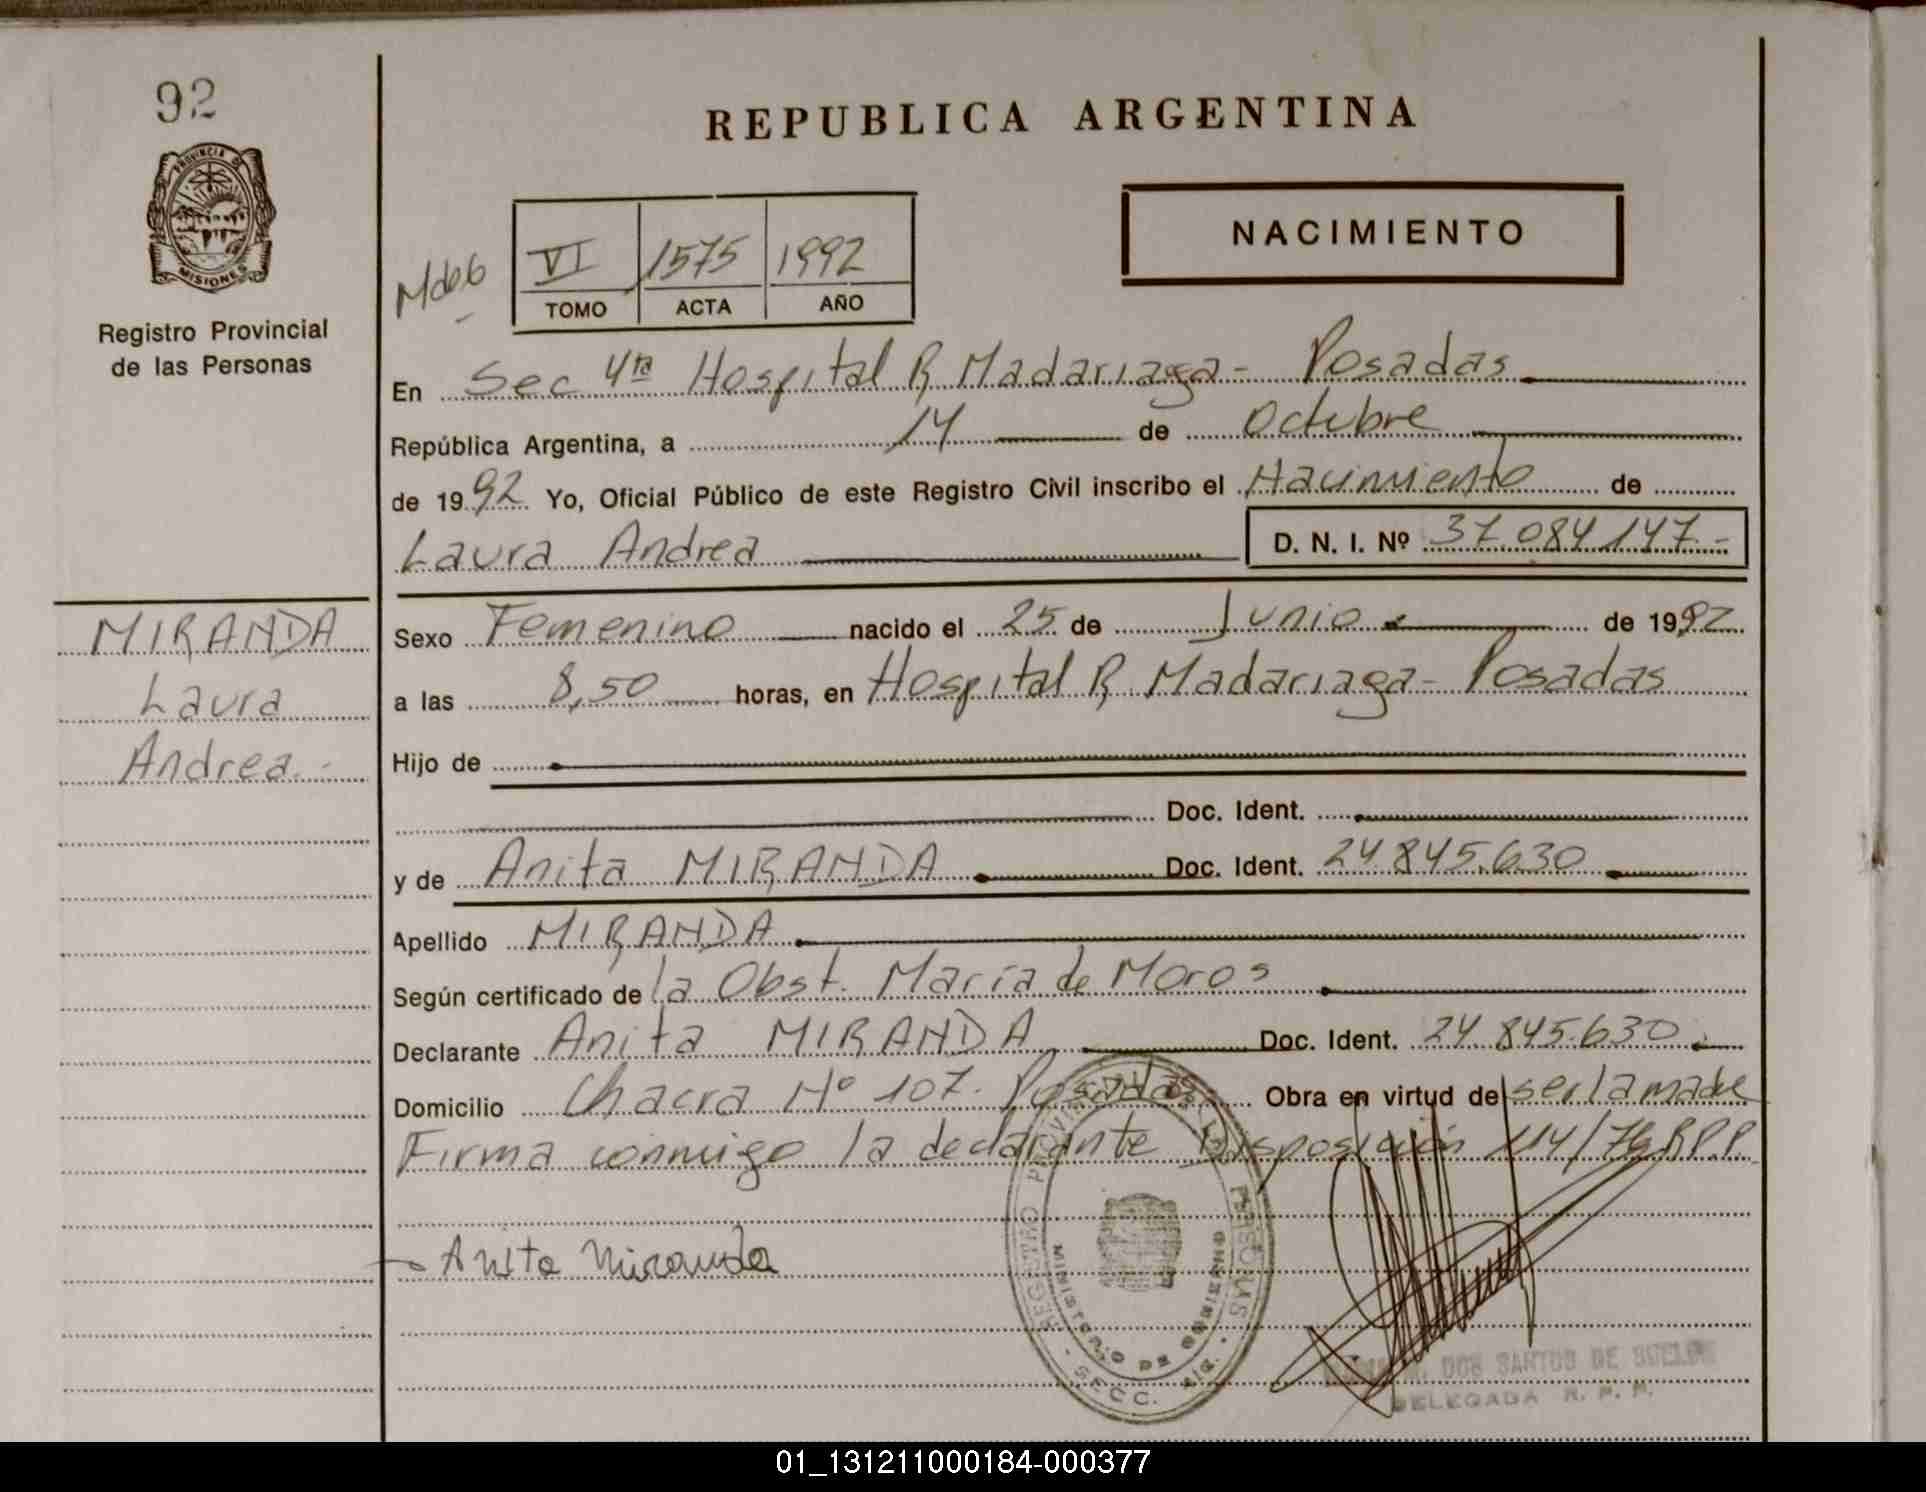 92
PROVINCIA DE
MISIONES
Registro Provincial
de las Personas
REPUBLICA ARGENTINA
NACIMIENTO
VI 1575 1992
TOMO ACTA AÑO
En Sec 4ta Hospital R Madariaga - Posadas
República Argentina, a 14 de Octubre
de 1992 Yo, Oficial Público de este Registro Civil inscribo el Nacimiento de
Laura Andrea D. N. I. Nº 37.084.147.-
MIRANDA
Laura
Andrea.-
Sexo Femenino nacido el 25 de Junio de 1992
a las 8,50 horas, en Hospital R Madariaga - Posadas
Hijo de
Doc. Ident.
y de Anita MIRANDA Doc. Ident. 24.845.630
Apellido MIRANDA
Según certificado de la Obst. María de Moros
Declarante Anita MIRANDA Doc. Ident. 24.845.630
Domicilio Chacra Nº 107. Posadas Obra en virtud de ser la madre
Firma conmigo la declarante Disposición 114/76 R.P.P.
Anita Miranda
REGISTRO PROVINCIAL PERSONAS
MINISTERIO DE GOBIERNO
SECC.
DOS SANTOS DE
DELEGADA R. P. P.
01_131211000184-000377